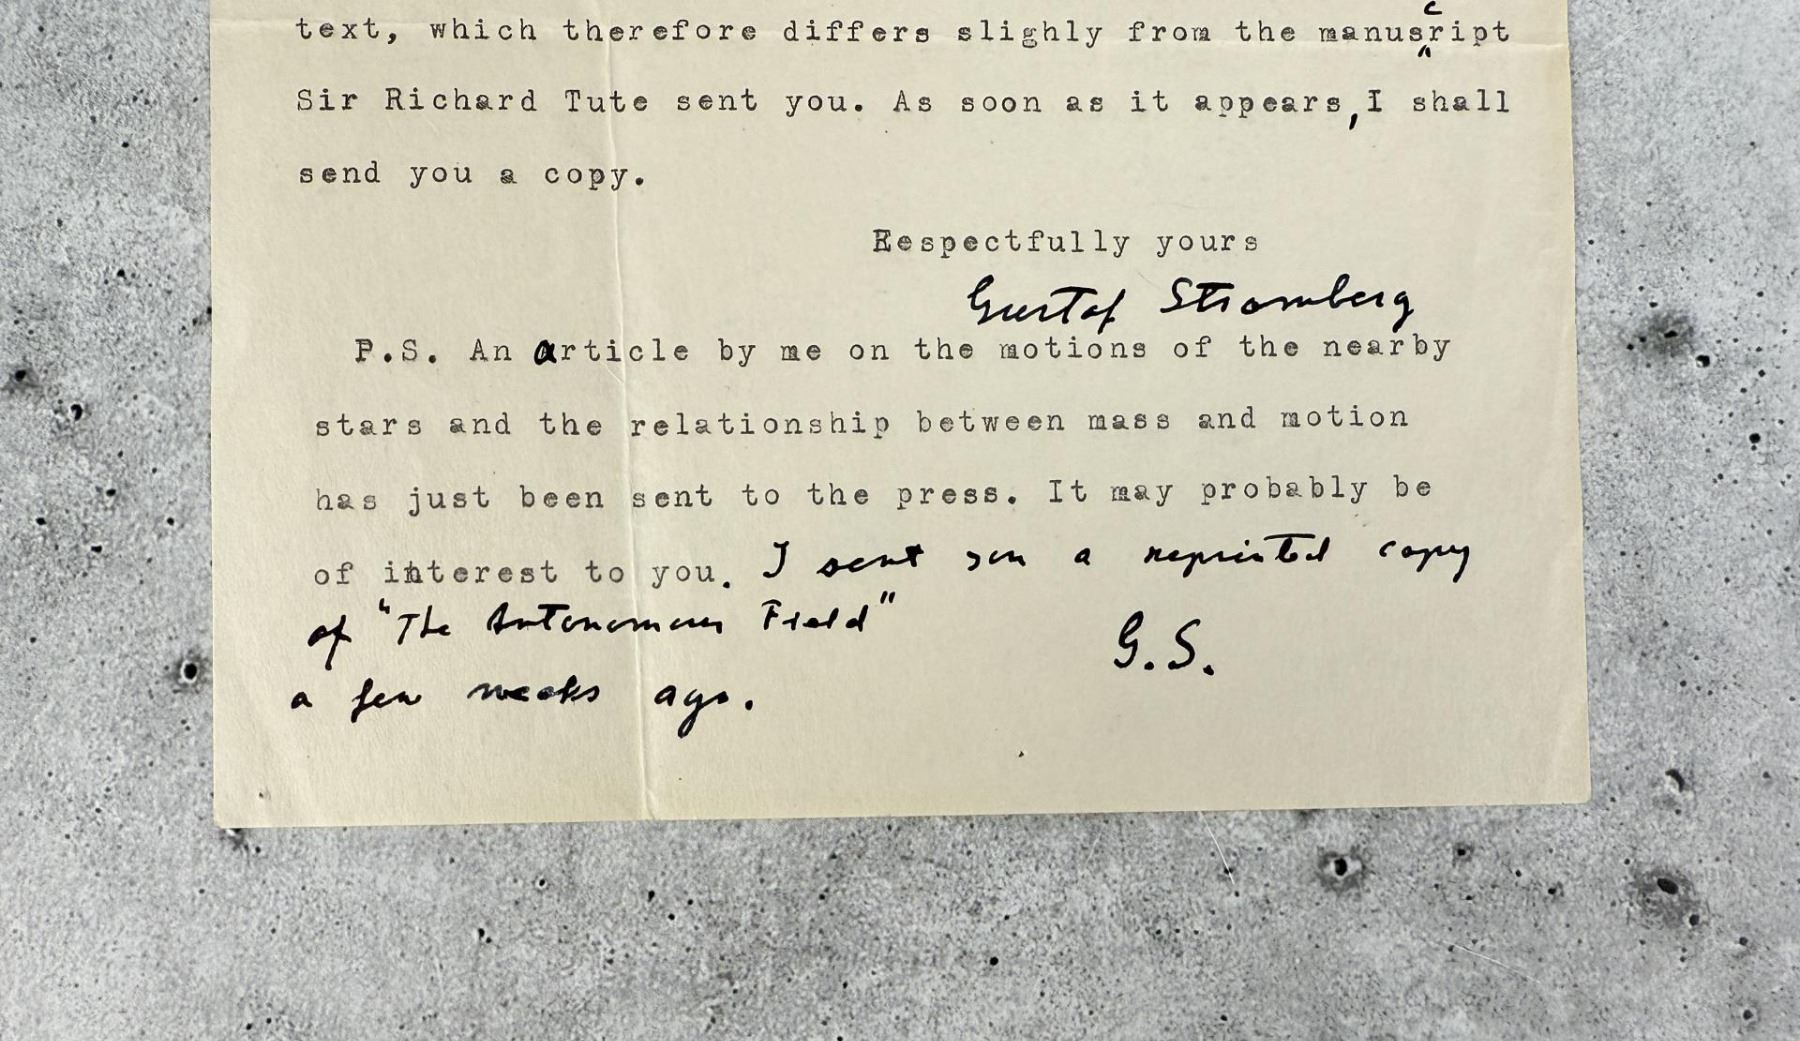 text, which therefore differs slighly from the manuscript
Sir Richard Tute sent you. As soon as it appears, I shall
send you a copy.
Respectfully yours
Gustaf Stromberg
P.S. An article by me on the motions of the nearby
stars and the relationship between mass and motion
has just been sent to the press. It may probably be
of interest to you. I sent you a reprinted copy
of "The Autonomous Field"
G.S.
a few weeks ago.